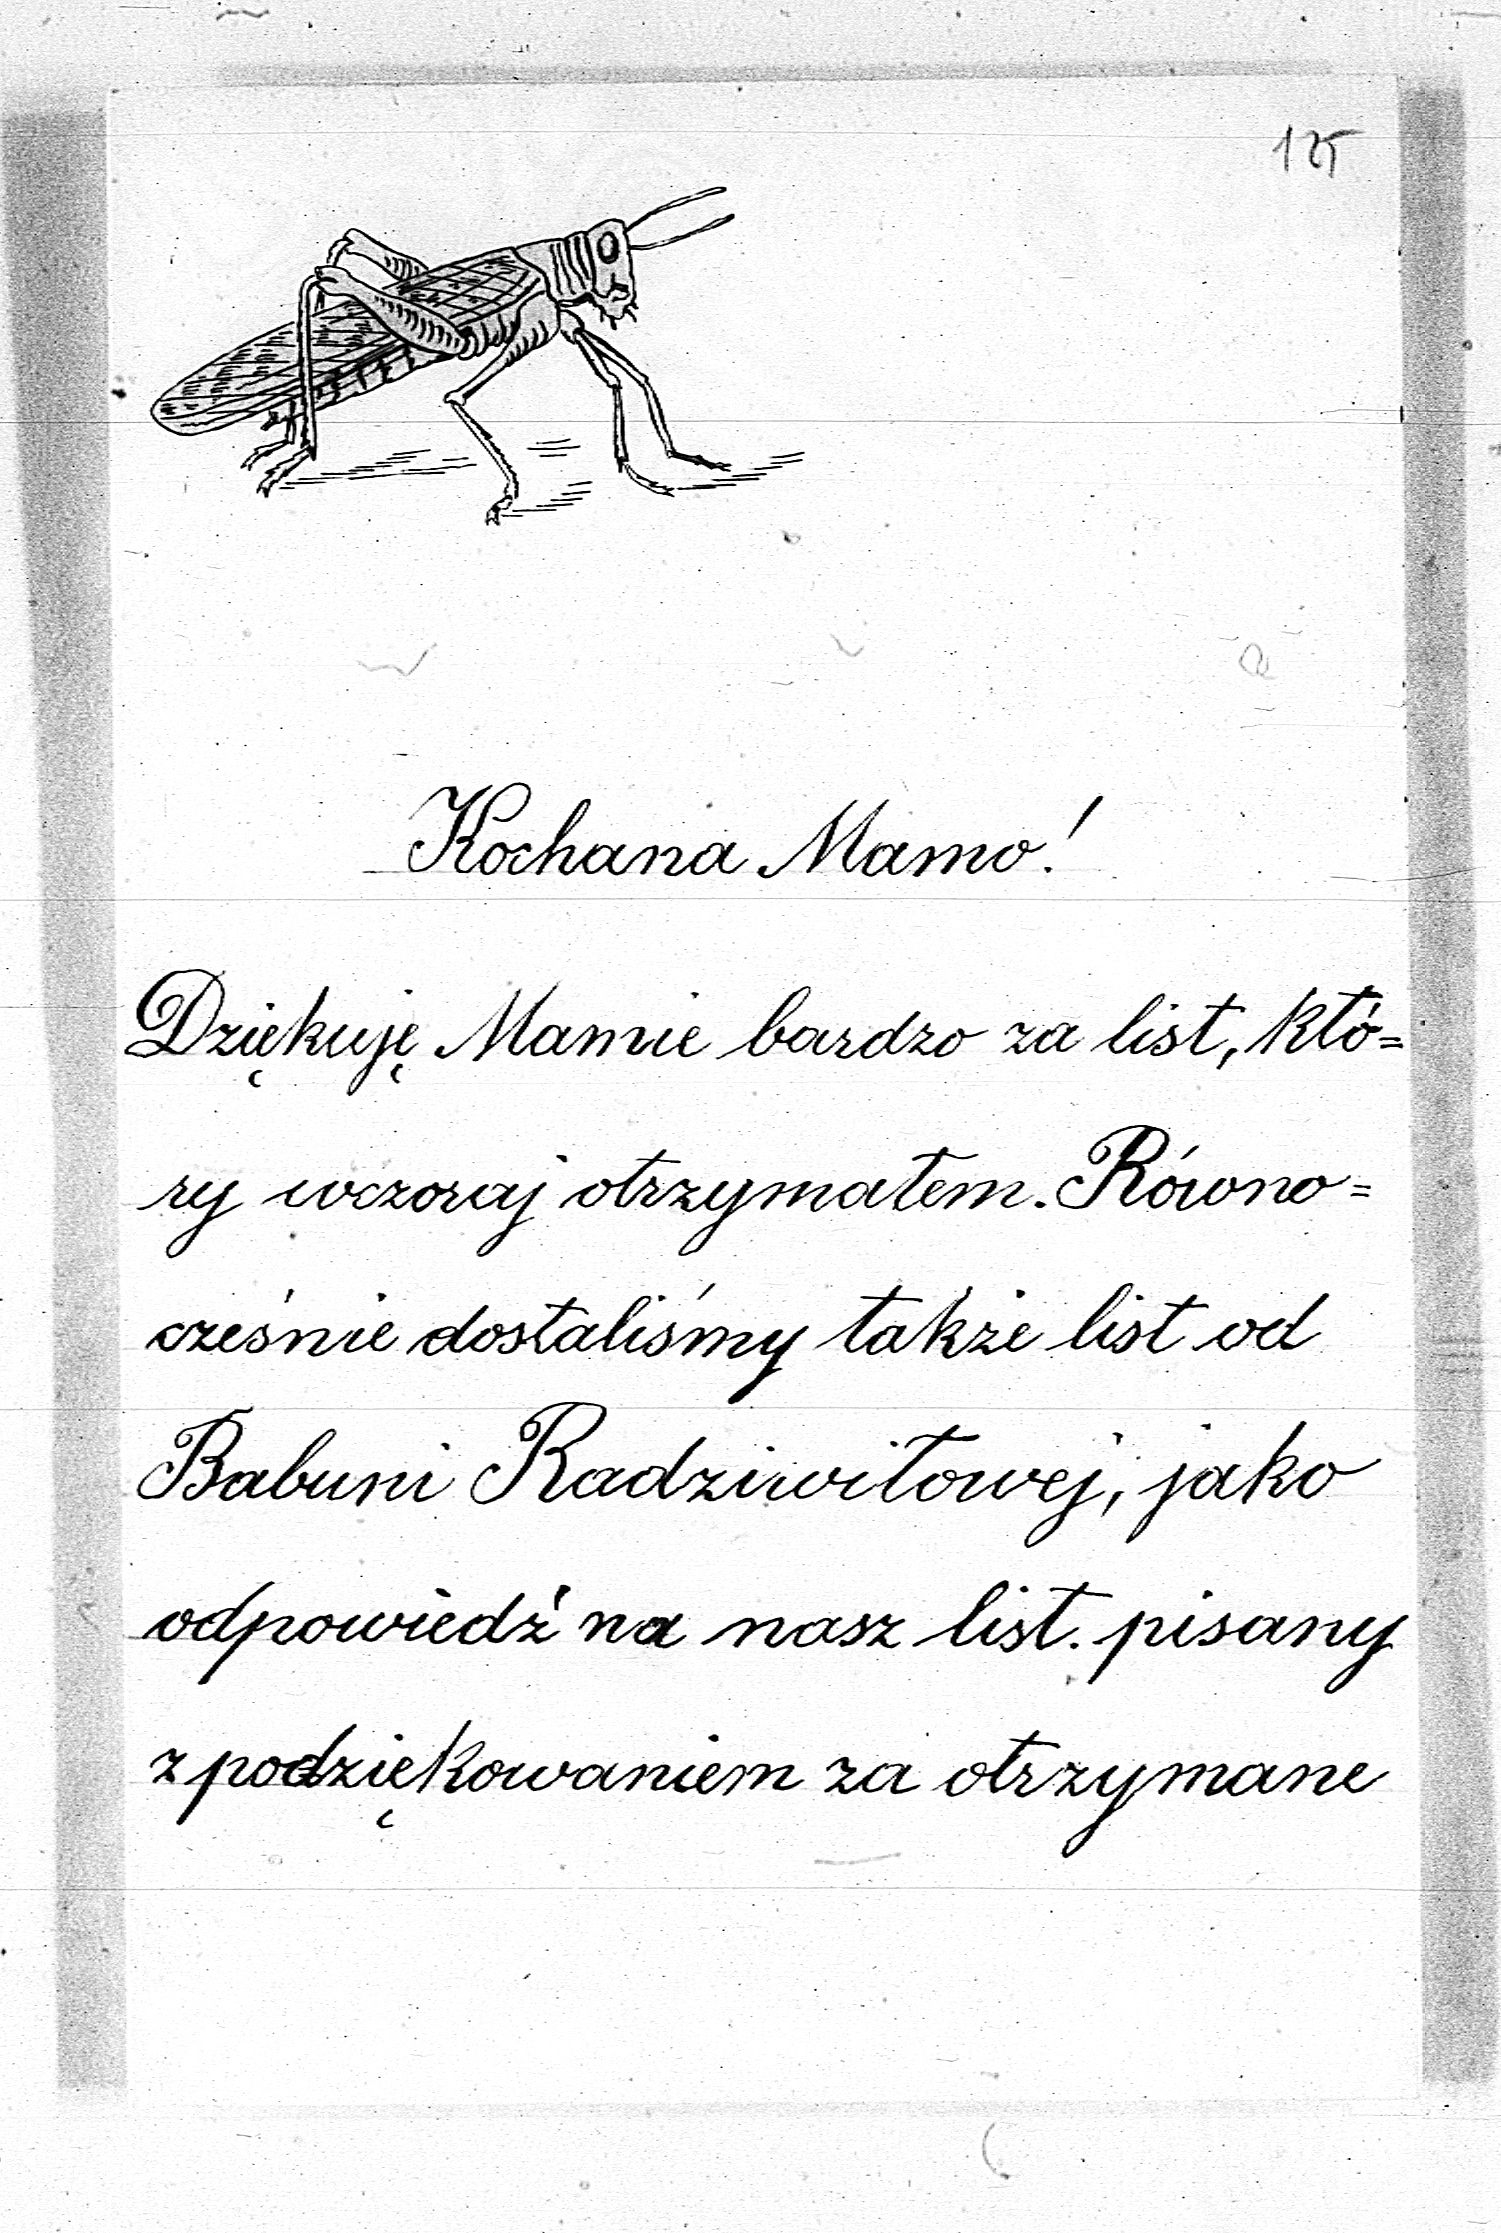 125
Kochana Mamo!
Dziękuję Mamie bardzo za list, któ=
ry wczoraj otrzymałem. Równo=
cześnie dostaliśmy także list od
Babuni Radziwiłowej, jako
odpowiedź na nasz list. pisany
z podziękowaniem za otrzymane